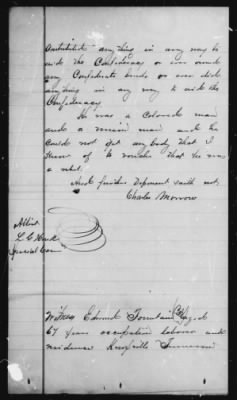 contribute anything in any way to
aid the Confederacy or ever owned
any Confederate bonds or ever did
anything in any way to aid the
Confederacy
He was a Colored man
and a union man and he
could not get any body that I
know of to vouche that he was
a rebel.
And further Deponent saith not.
Charles Morrow
Attest
L. C. Houk
Special Com
Witness Edmund Fountain (Col) Aged
67 years occupation laborer and
residence Knoxville Tennessee